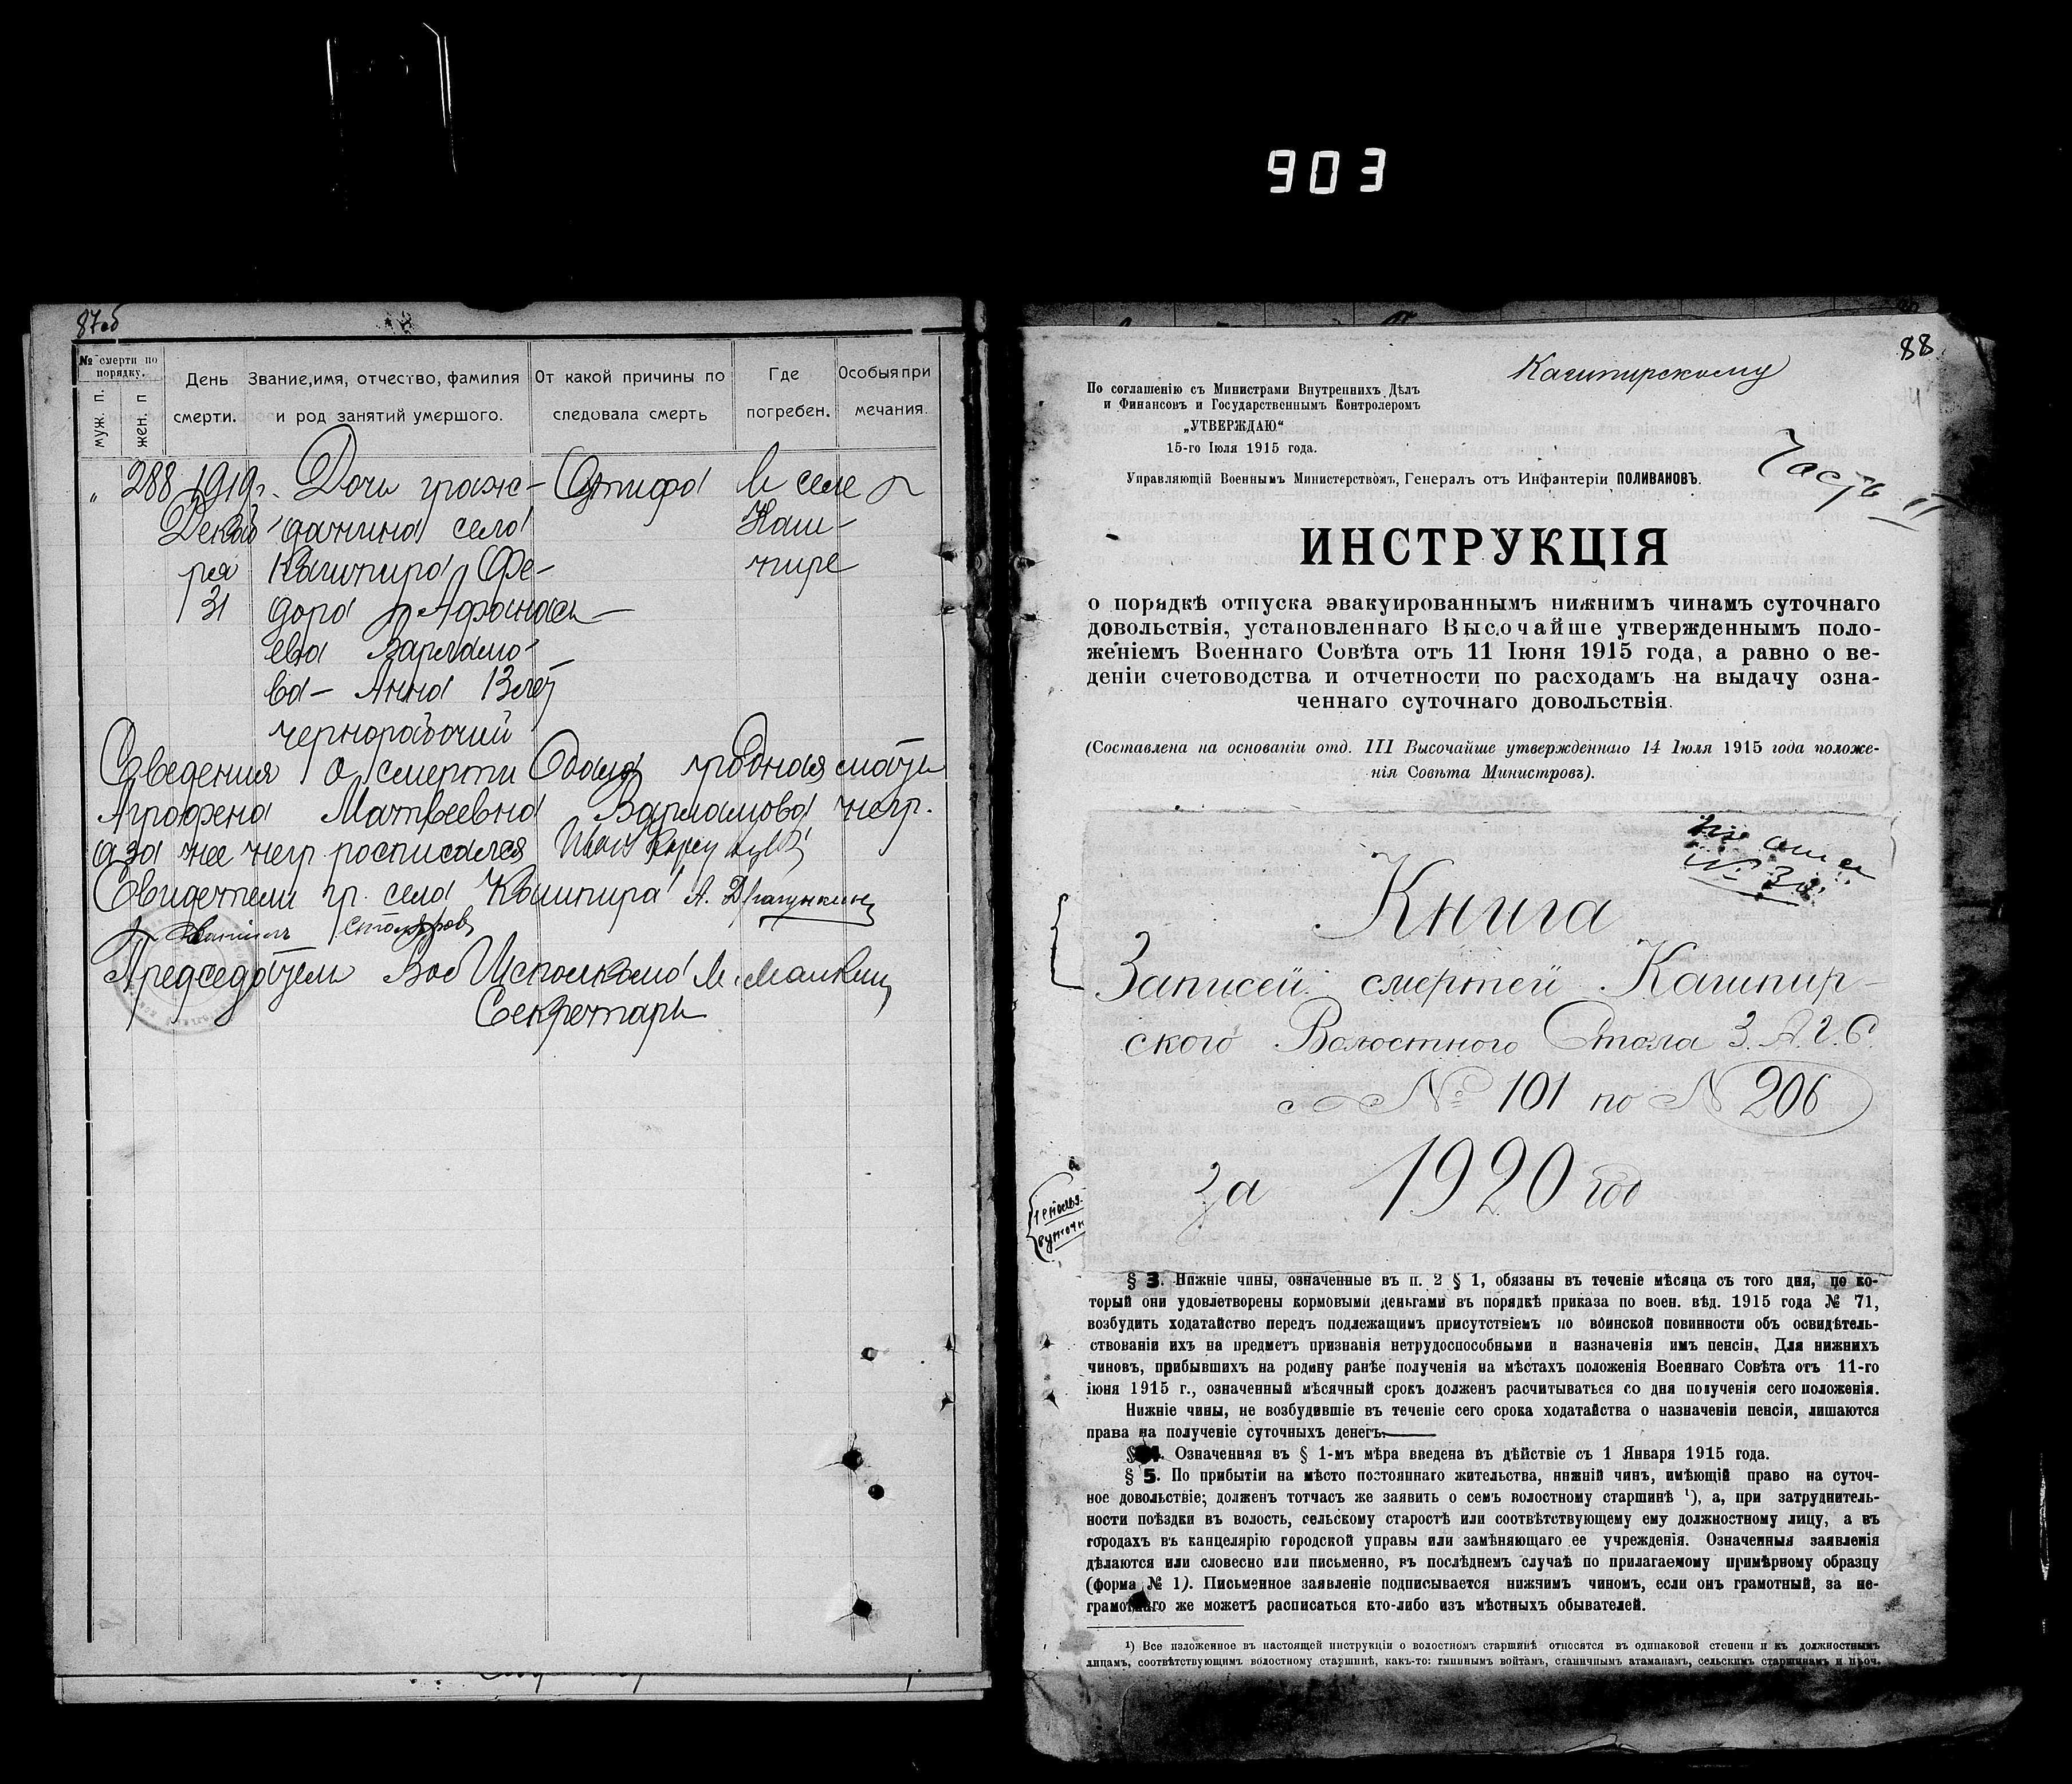 903
87об
№ смерти по порядку.
муж. п.
жен. п
День смерти.
Звание,имя, отчество, фамилия и род занятий умершого.
От какой причины по следовала смерть
Где погребен.
Особыя при мечания.
„ 288 1919г. Дочь граж- От тифа В селе
Декаб- данина села Каш-
ря Кашпира Фе- пире
31 дора Афанась-
ева Варламо-
ва - Анна 13 лет
чернорабочий
Сведения о смерти дала родная мать
Аграфена Матвеевна Варламова негр.
а за нее негр росписался Иван
Свидетели гр. села Кашпира А. Драгункин
Столяров
Председатель Вол Исполкома М. Малкин
Секретарь
88
Кашпирскому
По соглашенію съ Министрами Внутреннихъ Дѣлъ
и Финансовъ и Государственнымъ Контролеромъ
„УТВЕРЖДАЮ“
15-го Іюля 1915 года.
Управляющій Военнымъ Министерствомъ, Генералъ отъ Инфантеріи ПОЛИВАНОВЪ.
Часть II
ИНСТРУКЦІЯ
о порядкѣ отпуска эвакуированнымъ нижнимъ чинамъ суточнаго
довольствія, установленнаго Высочайше утвержденнымъ поло-
женіемъ Военнаго Совѣта отъ 11 Іюня 1915 года, а равно о ве-
деніи счетоводства и отчетности по расходамъ на выдачу озна-
ченнаго суточнаго довольствія.
(Составлена на основаніи отд. III Высочайше утвержденнаго 14 Іюля 1915 года положе-
нія Совѣта Министровъ).
Книга
Записей смертей Кашпир-
ского Волостного Стола З.А.Г.С.
с № 101 по № 206
за 1920 год
§ 3. Нижніе чины, означенные въ п. 2 § 1, обязаны въ теченіе мѣсяца съ того дня, по ко-
торый они удовлетворены кормовыми деньгами въ порядкѣ приказа по воен. вѣд. 1915 года № 71,
возбудить ходатайство передъ подлежащимъ присутствіемъ по воинской повинности объ освидѣтель-
ствованіи ихъ на предметъ признанія нетрудоспособными и назначенія имъ пенсіи. Для нижнихъ
чиновъ, прибывшихъ на родину ранѣе полученія на мѣстахъ положенія Военнаго Совѣта отъ 11-го
іюня 1915 г., означенный мѣсячный срокъ долженъ расчитываться со дня полученія сего положенія.
Нижніе чины, не возбудившіе въ теченіе сего срока ходатайства о назначеніи пенсіи, лишаются
права на полученіе суточныхъ денегъ.
§ 4. Означенная въ § 1-мъ мѣра введена въ дѣйствіе съ 1 Января 1915 года.
§ 5. По прибытіи на мѣсто постояннаго жительства, нижній чинъ, имѣющій право на суточ-
ное довольствіе; долженъ тотчасъ же заявить о семъ волостному старшинѣ ¹), а, при затруднитель-
ности поѣздки въ волость, сельскому старостѣ или соотвѣтствующему ему должностному лицу, а въ
городахъ въ канцелярію городской управы или замѣняющаго ее учрежденія. Означенныя заявленія
дѣлаются или словесно или письменно, въ послѣднемъ случаѣ по прилагаемому примѣрному образцу
(форма № 1). Письменное заявленіе подписывается нижнимъ чиномъ, если онъ грамотный, за не-
грамотнаго же можетъ расписаться кто-либо изъ мѣстныхъ обывателей.
¹) Все изложенное въ настоящей инструкціи о волостномъ старшинѣ относятся въ одинаковой степени и къ должностнымъ
лицамъ, соотвѣтствующимъ волостному старшинѣ, какъ-то: гминнымъ войтамъ, станичнымъ атаманамъ, сельскимъ старшинамъ и проч.